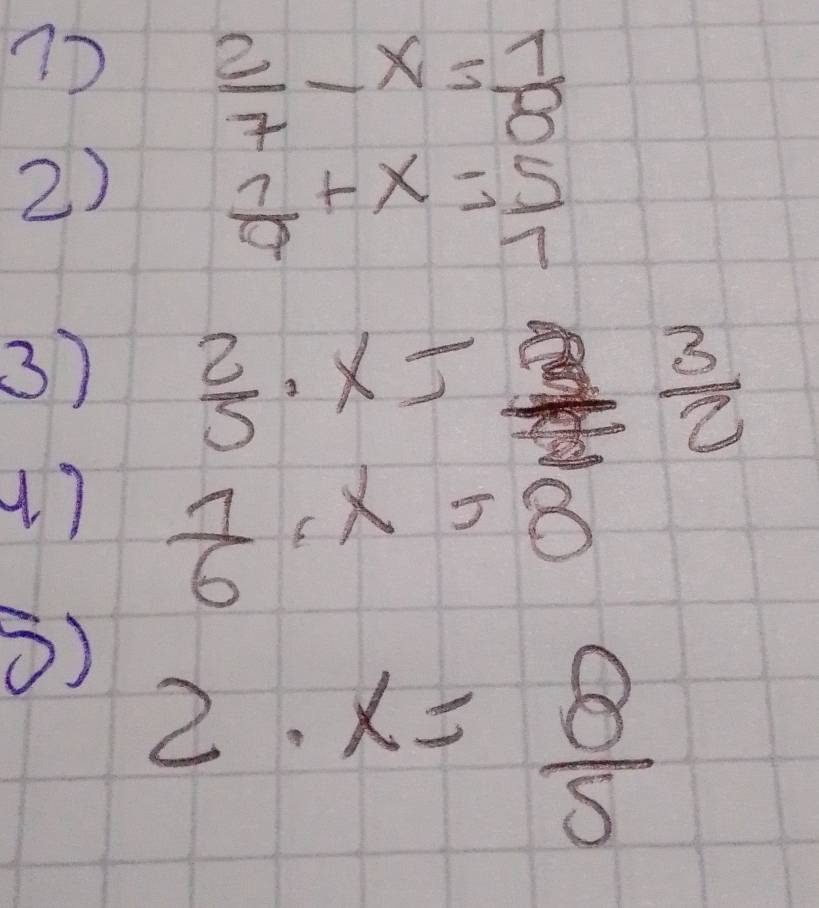 1) 2/7 - x = 1/8
2) 1/9 + x = 5/1
3) 2/5 · x = 3/2
4) 1/6 · x = 8
5) 2 · x = 8/5